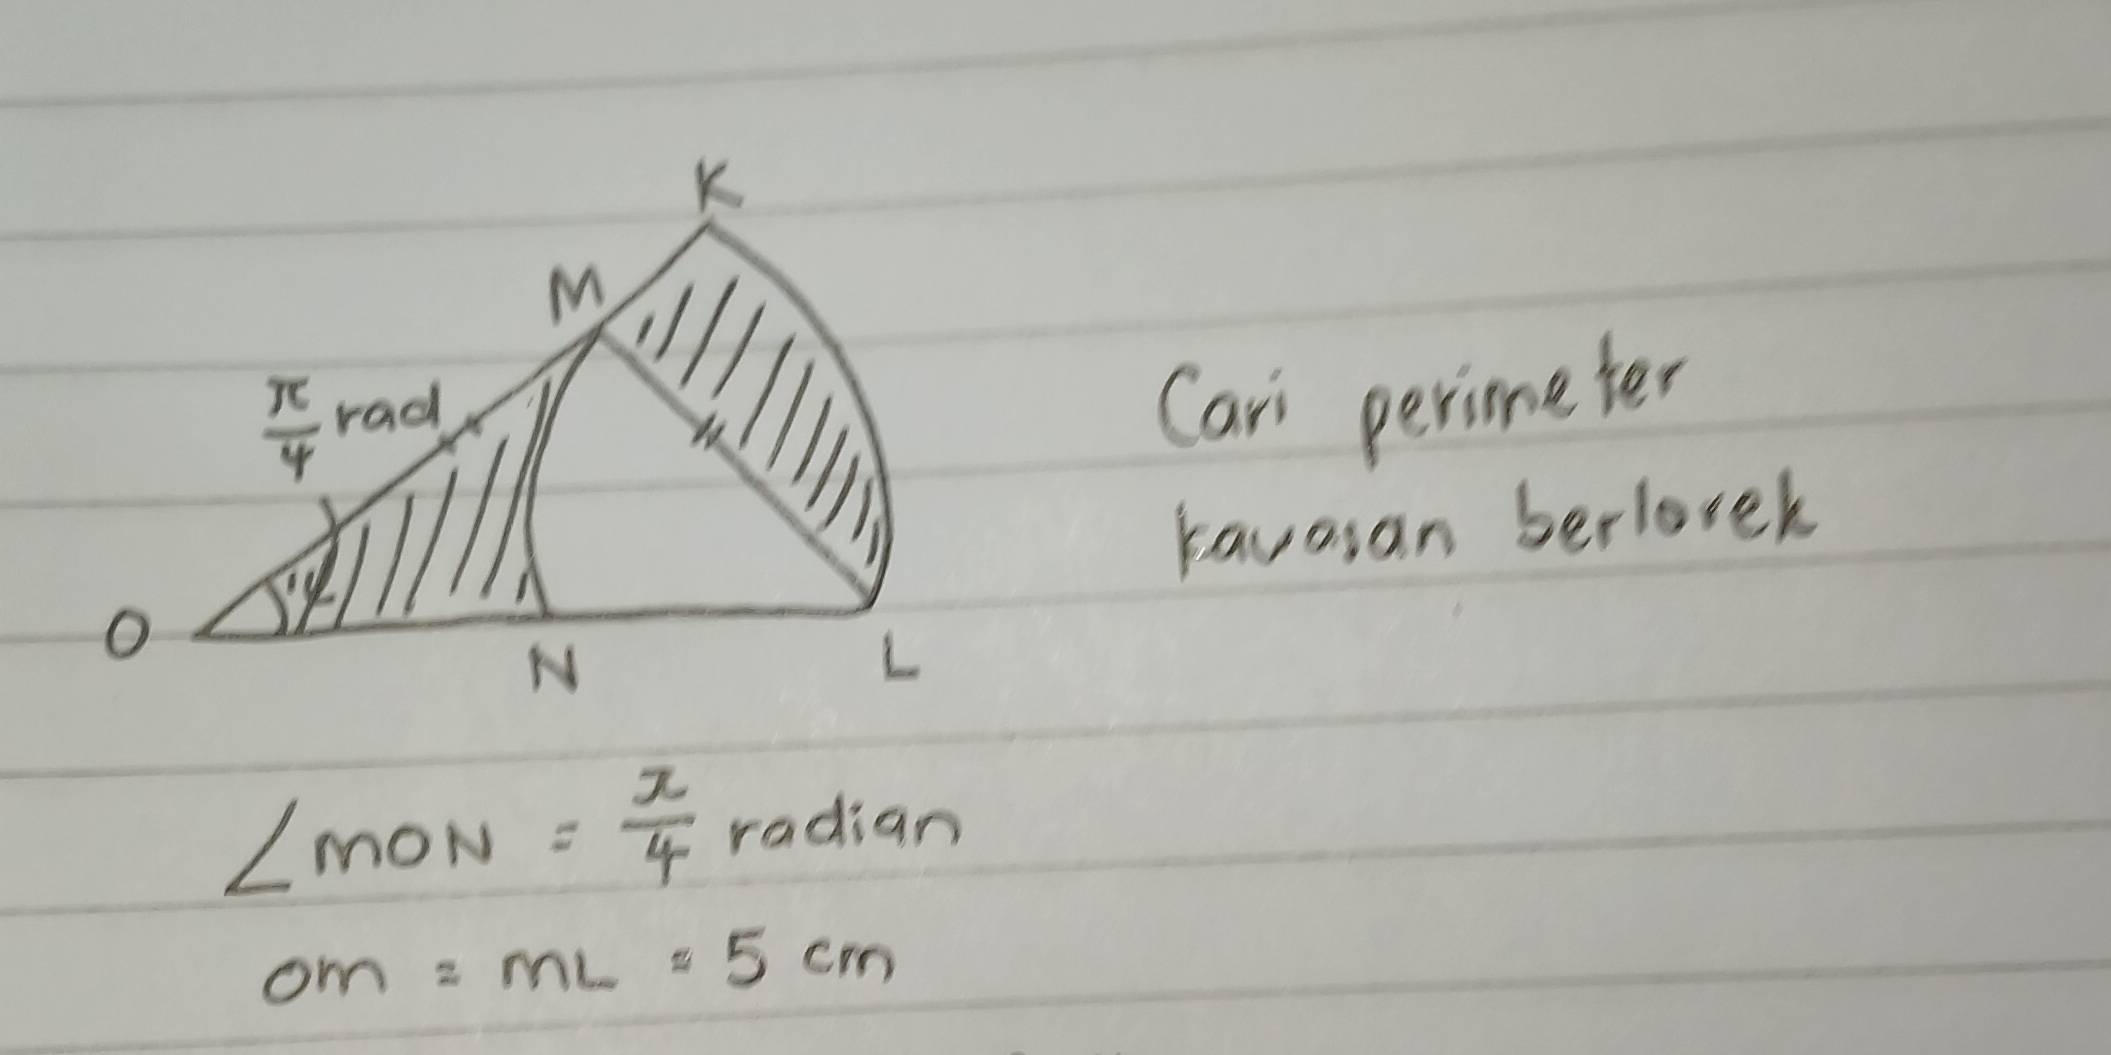 K
M
π/4 rad
O
N
L
Cari perimeter
kawasan berlorek
∠MON = π/4 radian
OM = ML = 5 cm